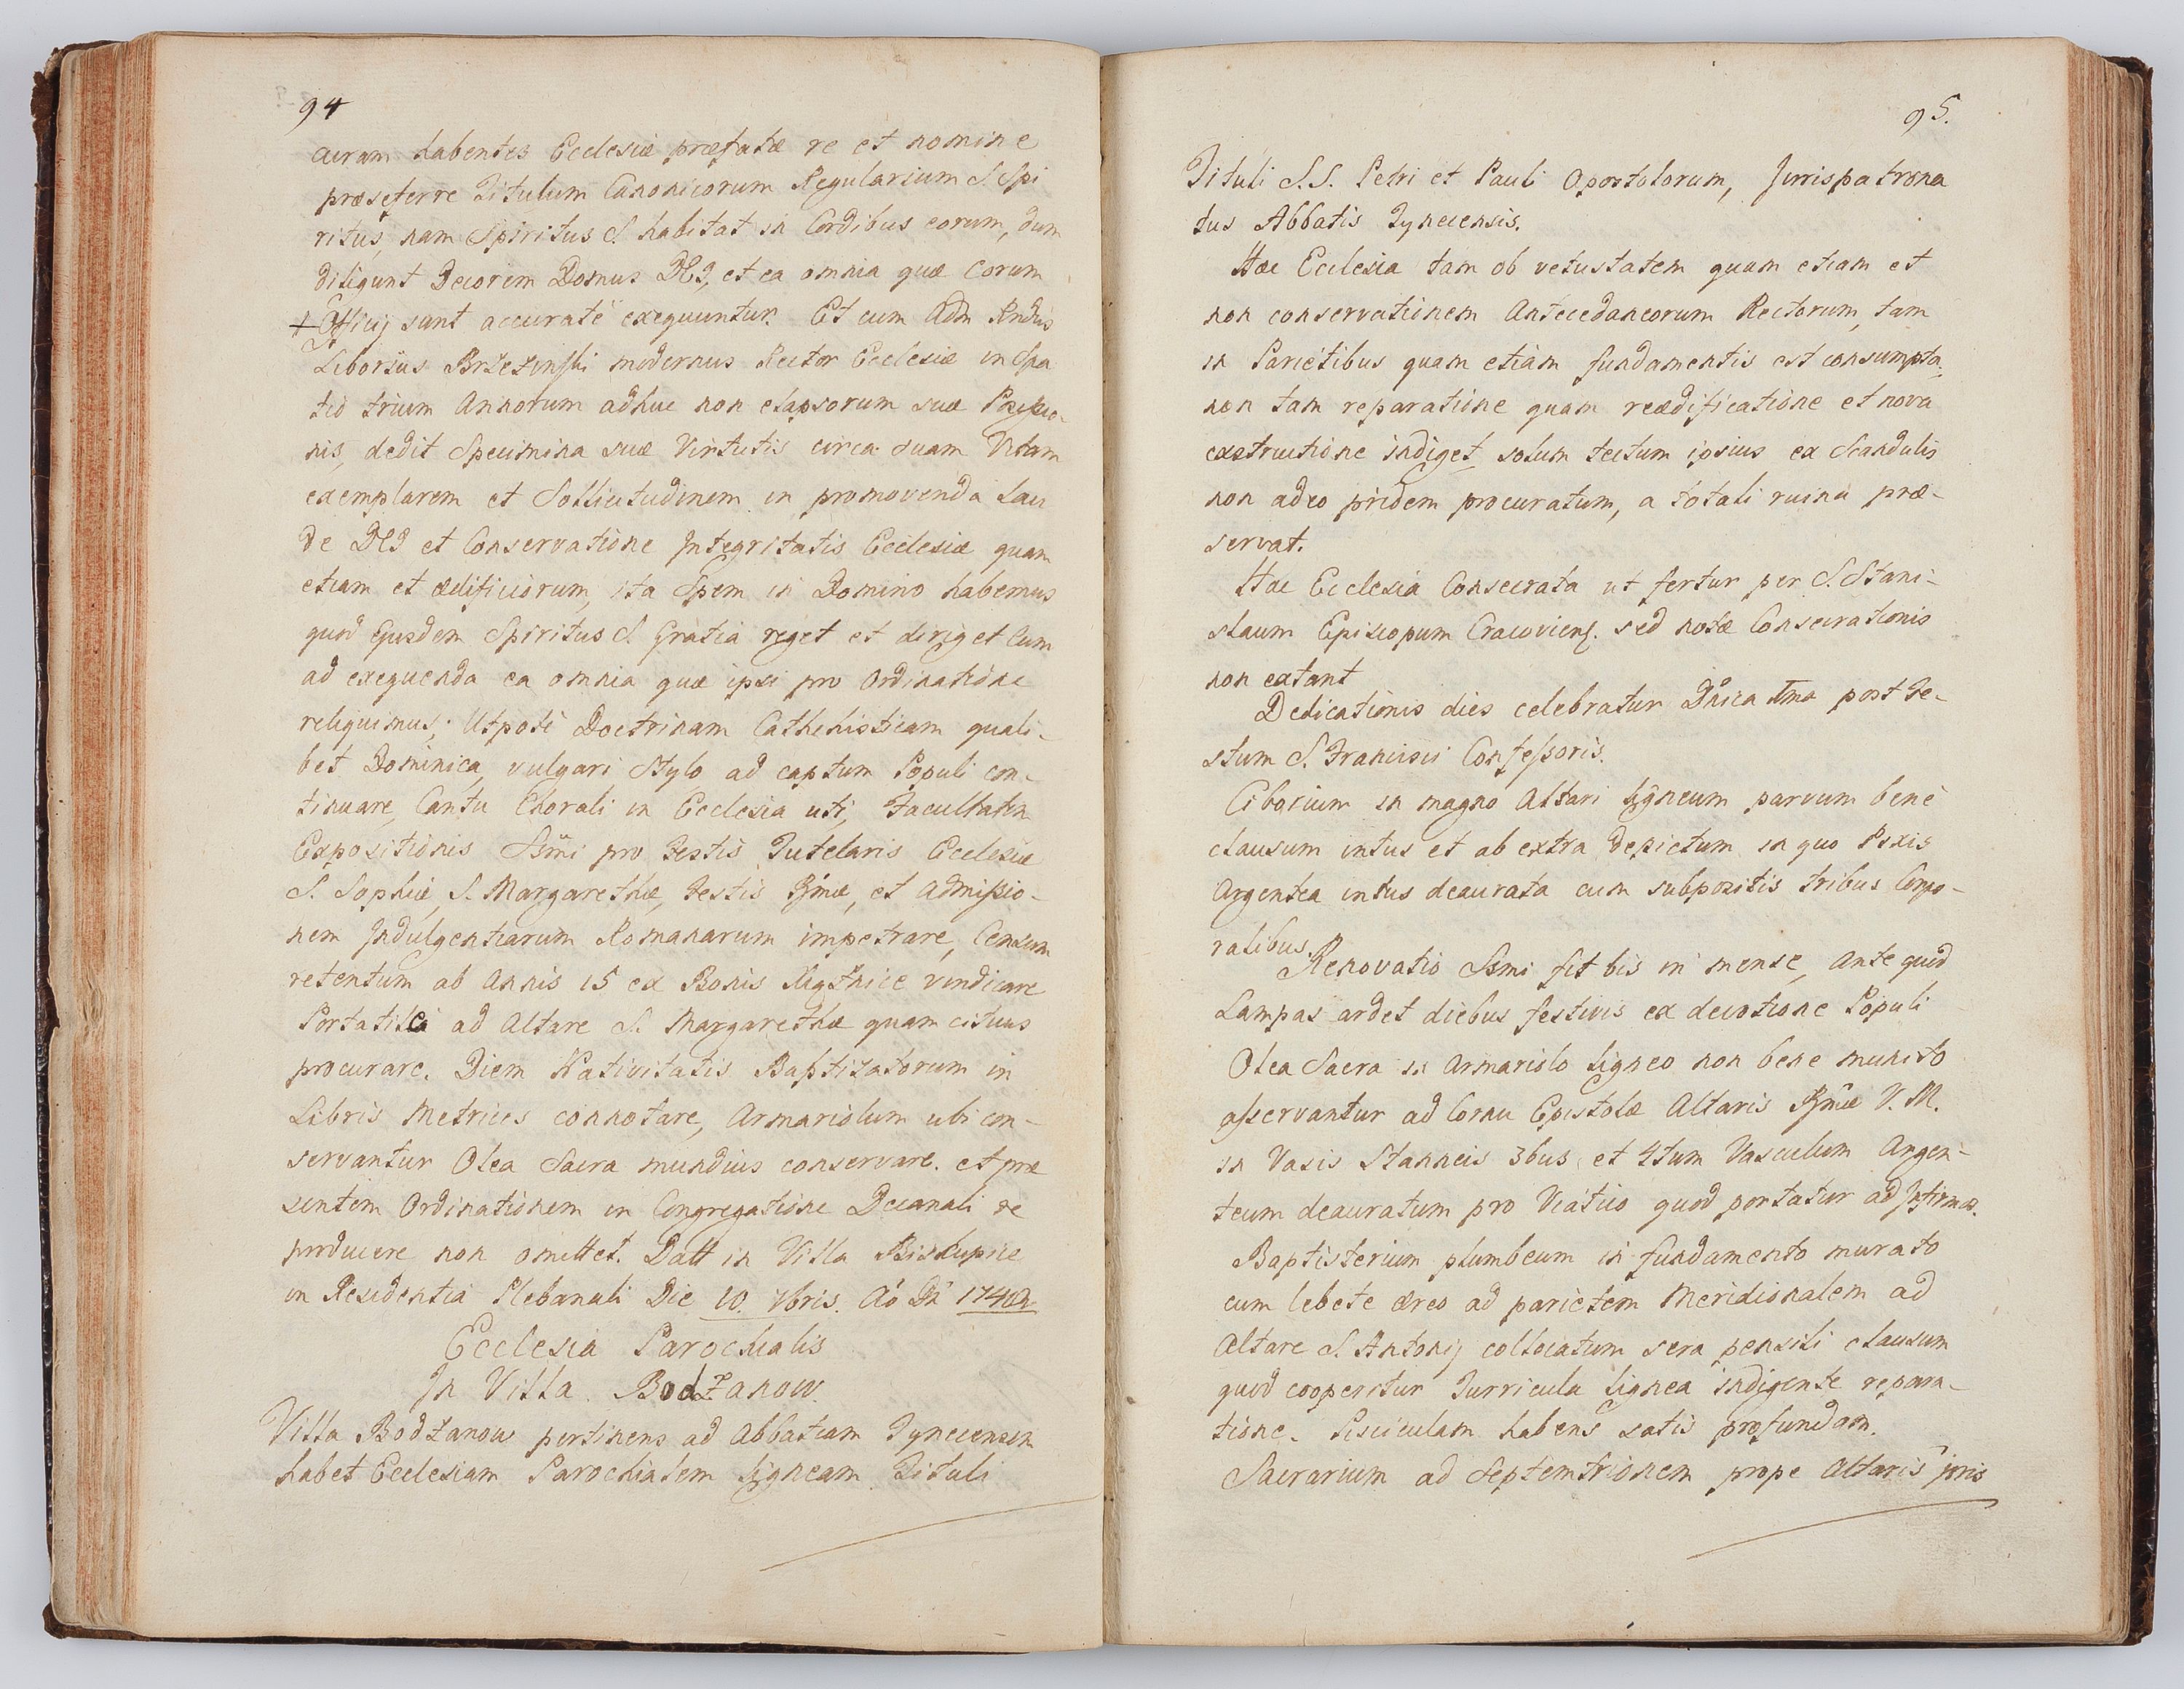 94
curam habentes Ecclesiæ præfatæ re et nomine
præseferre Titulum Canonicorum Regularium S. Spi
ritus, nam Spiritus S. habitat in Cordibus eorum, dum
diligunt Decorem Domus DEI, et ea omnia quæ Eorum
Officij sunt accuratè exequuntur. Et cum Adm Rndus
Liborius Brzezinski modernus Rector Ecclesiæ in Spa
tio trium Annorum adhuc non elapsorum suæ
nis, dedit Specimina suæ Virtutis circa suam Vitam
exemplarem et Sollicitudinem in promovenda Lau
de DEI et Conservatione Integritatis Ecclesiæ quam
etiam et ædificiorum, ita Spem in Domino habemus
quod Ejusdem Spiritus S. Gratia reget et diriget Eum
ad exequenda ea omnia quæ ipsi pro Ordinatione
reliquimus; Utpote Doctrinam Cathehisticam quali-
bet Dominica, vulgari Stylo ad captum Populi con-
tinuare, Cantu Chorali in Ecclesia uti, Facultatem
Expositionis Ssmi pro Festis Tutelaris Ecclesiæ
S. Sophiæ, S. Margarethæ, Festis Bmæ, et Admissio-
nem Indulgentiarum Romanarum impetrare, Censum
retentum ab Annis 15 ex Bonis vindicare
ad Altare S. Margarethæ quam citius
procurare. Diem Nativitatis Baptizatorum in
Libris Metrices connotare, Armariolum ubi con-
servantur Olea Sacra mundius conservare. et præ
sentem Ordinationem in Congregatione Decanali re
producere non omittet. Datt in Villa Biskupice
in Residentia Plebanali Die 10. 7bris. Aó Dñ
Ecclesia Parochialis
In Villa Bodzanow.
Villa Bodzanow pertinens ad Abbatiam Tynecensem
habet Ecclesiam Parochialem ligneam Tituli
95.
Tituli S.S. Petri et Pauli Apostolorum, Jurispatrona
tus Abbatis Tynecensis.
Hæc Ecclesia tam ob vetustatem quam etiam et
non conservationem Antecedaneorum Rectorum, tam
in Parietibus quam etiam fundamentis est consumpta.
non tam reparatione quam reædificatione et nova
exstructione indiget, solum tectum ipsius ex Scandulis
non adeo pridem procuratum, a totali ruina præ-
servat.
Hæc Ecclesia Consecrata ut fertur per S. Stani-
slaum Episcopum Cracoviens. sed notæ Consecrationis
non extant
Dedicationis dies celebratur Dnica 1ma post Fe-
stum S. Francisci Confessoris.
Ciborium in magno Altari ligneum parvum benè
clausum intus et ab extra depictum in quo Pixis
Argentea intus deaurata cum subpositis tribus Corpo-
ralibus.
Renovatio Ssmi fit bis in mense, Ante quod
Lampas ardet diebus festivis ex devotione Populi
Olea Sacra in Armariolo ligneo non bene munito
asservantur ad Cornu Epistolæ Altaris Bmæ V. M.
in Vasis Stanneis 3bus et 4tum Vasculum Argen-
teum deauratum pro Viatico quod portatur ad Infirmos.
Baptisterium plumbeum in fundamento murato
cum lebete æreo ad parietem Meridionalem ad
Altare S. Antonij collocatum sera pensili clausum
quod cooperitur Turricula lignea indigente repara-
tione. Pisciculam habens satis profundam.
Sacrarium ad Septemtrionem prope Altaris